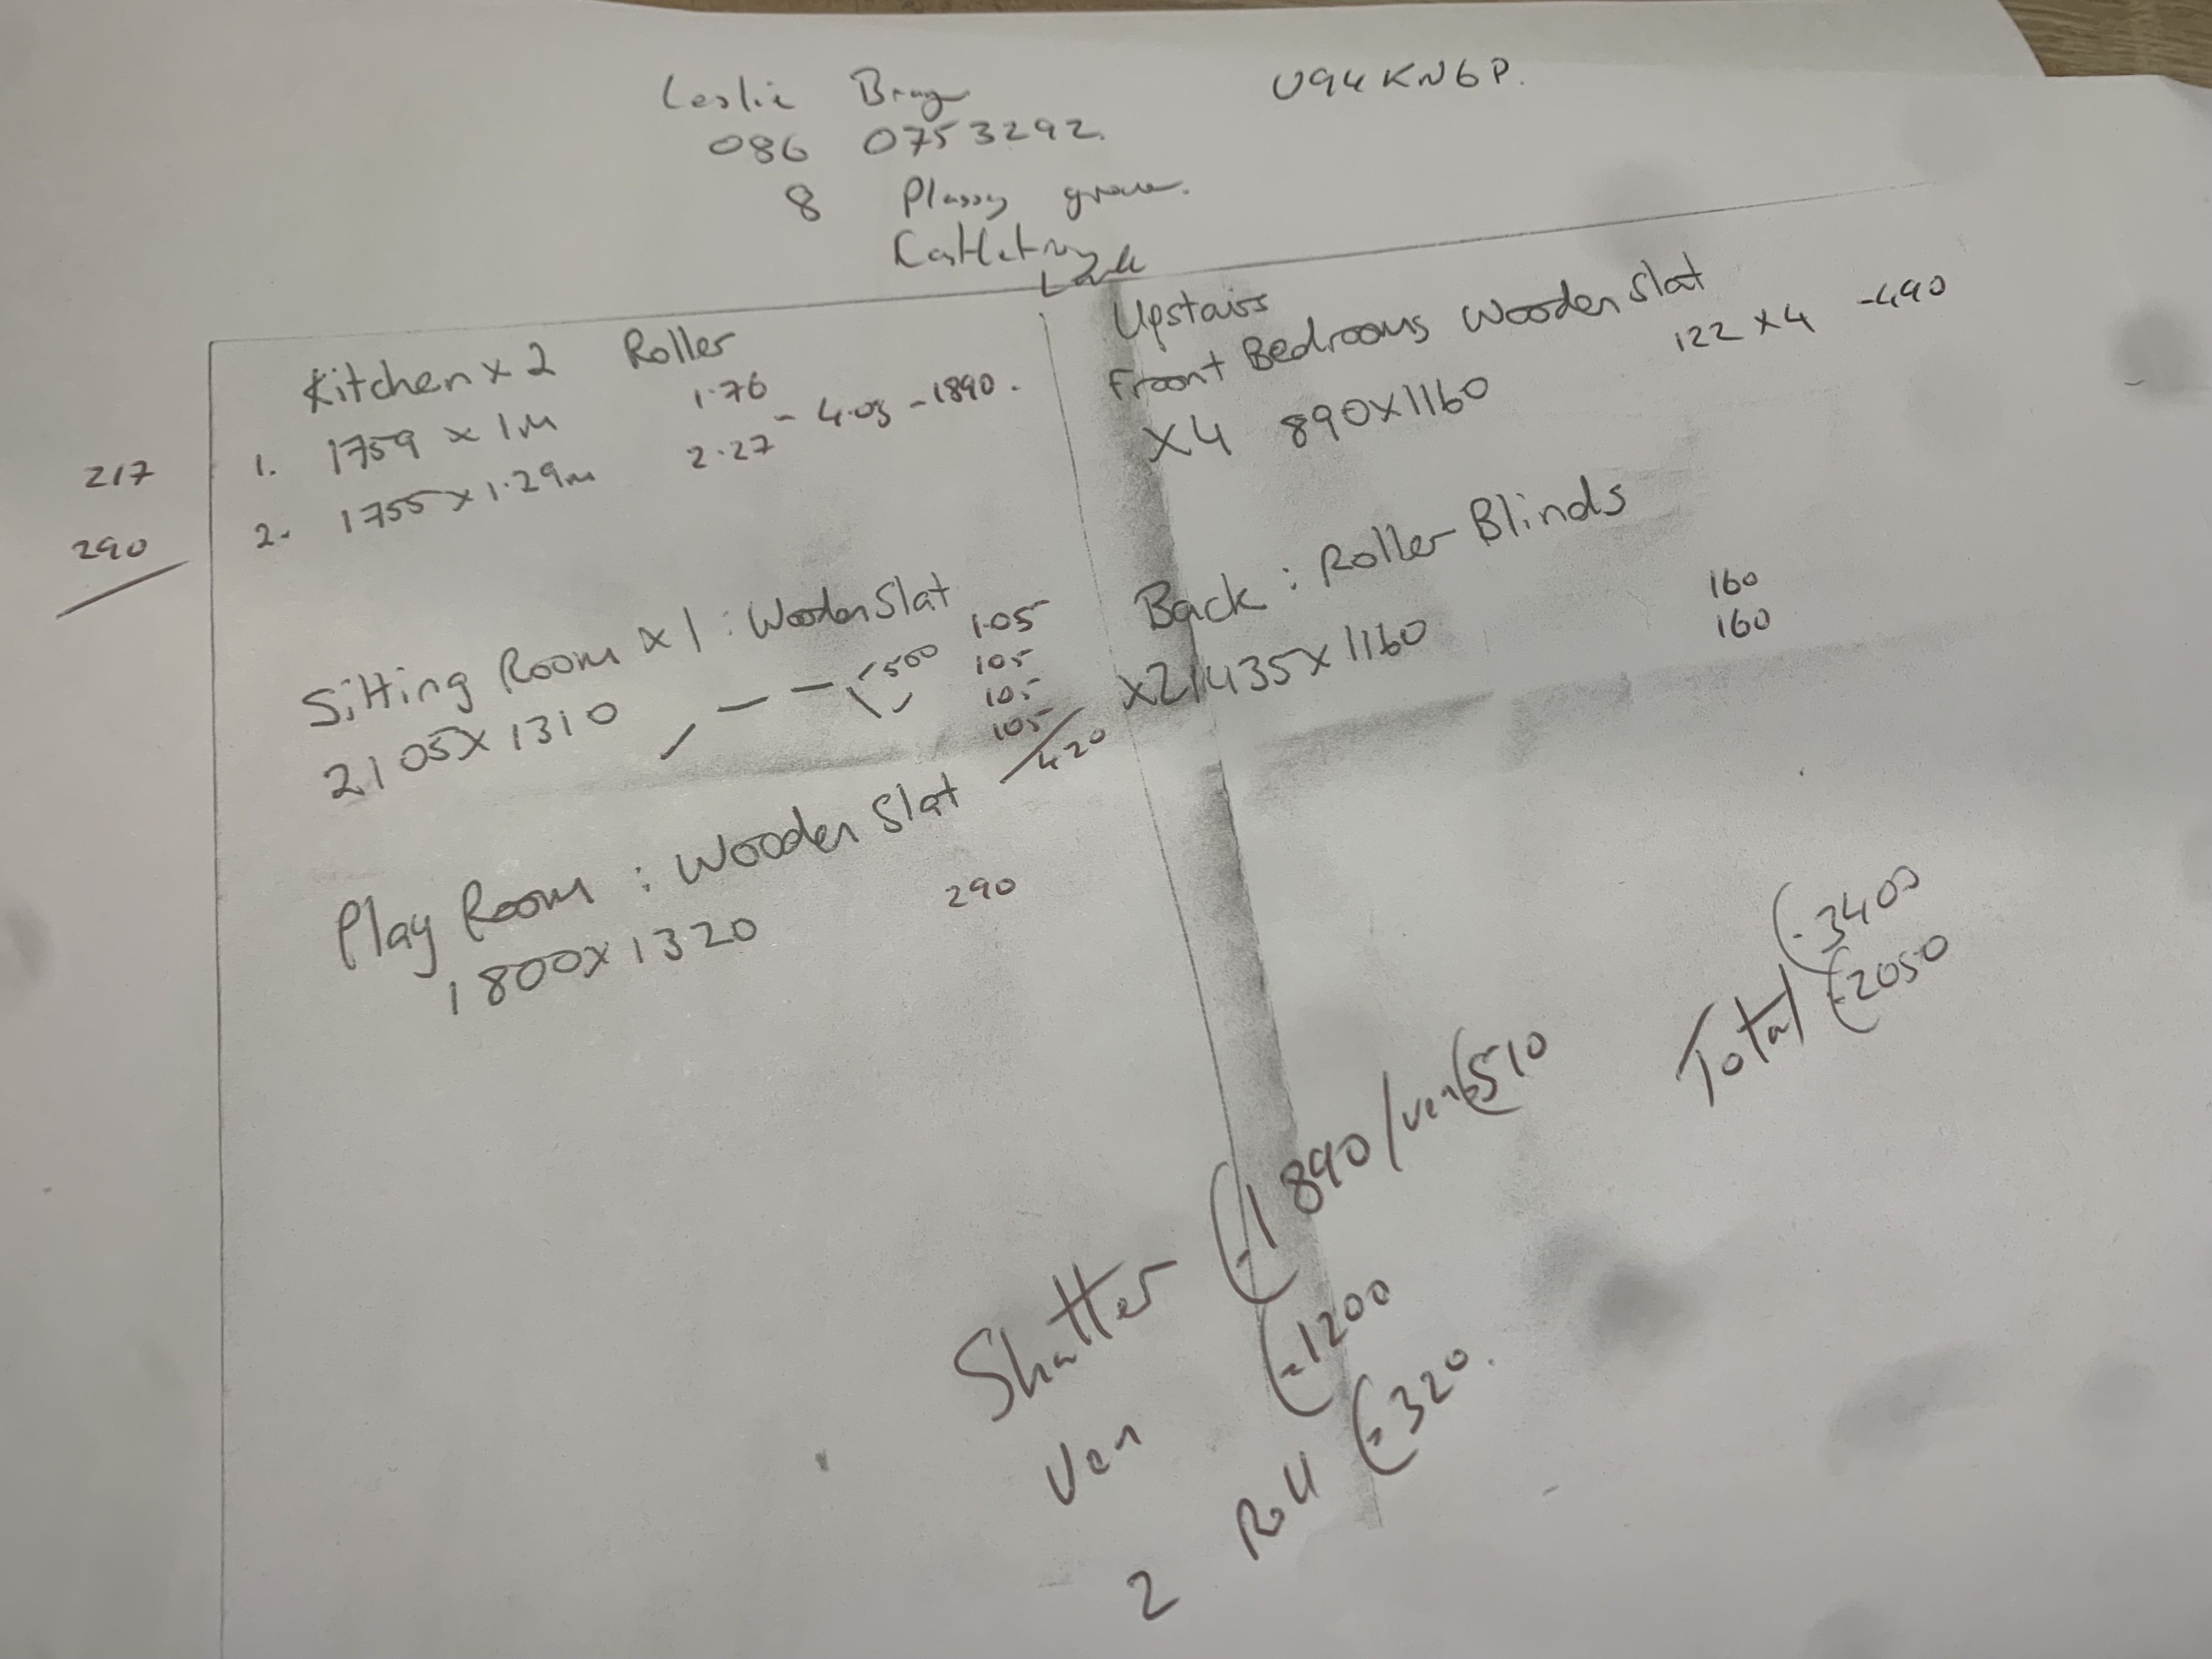 Leslie Bray
U94KN6P.
086 0753292.
8 Plassy grove.
Castletroy
Kitchen x 2 Roller
217 1. 1759 x 1M 1.76
290 2. 1755 x 1.29m 2.27 - 4.03 - 1890.
Sitting Room x 1 : Wooden Slat
2105 X 1310 €500
1.05
105
105
105
420
Play Room : Wooden Slat
1800 x 1320 290
Upstairs
Front Bedrooms Wooden Slat
X4 890x1160 122 x 4 - 490
Back : Roller Blinds
x2 1435 x 1160 160
160
€3400
Total €2050
Shutter €1890 / ven €510
Ven €1200
2 Roll €320.